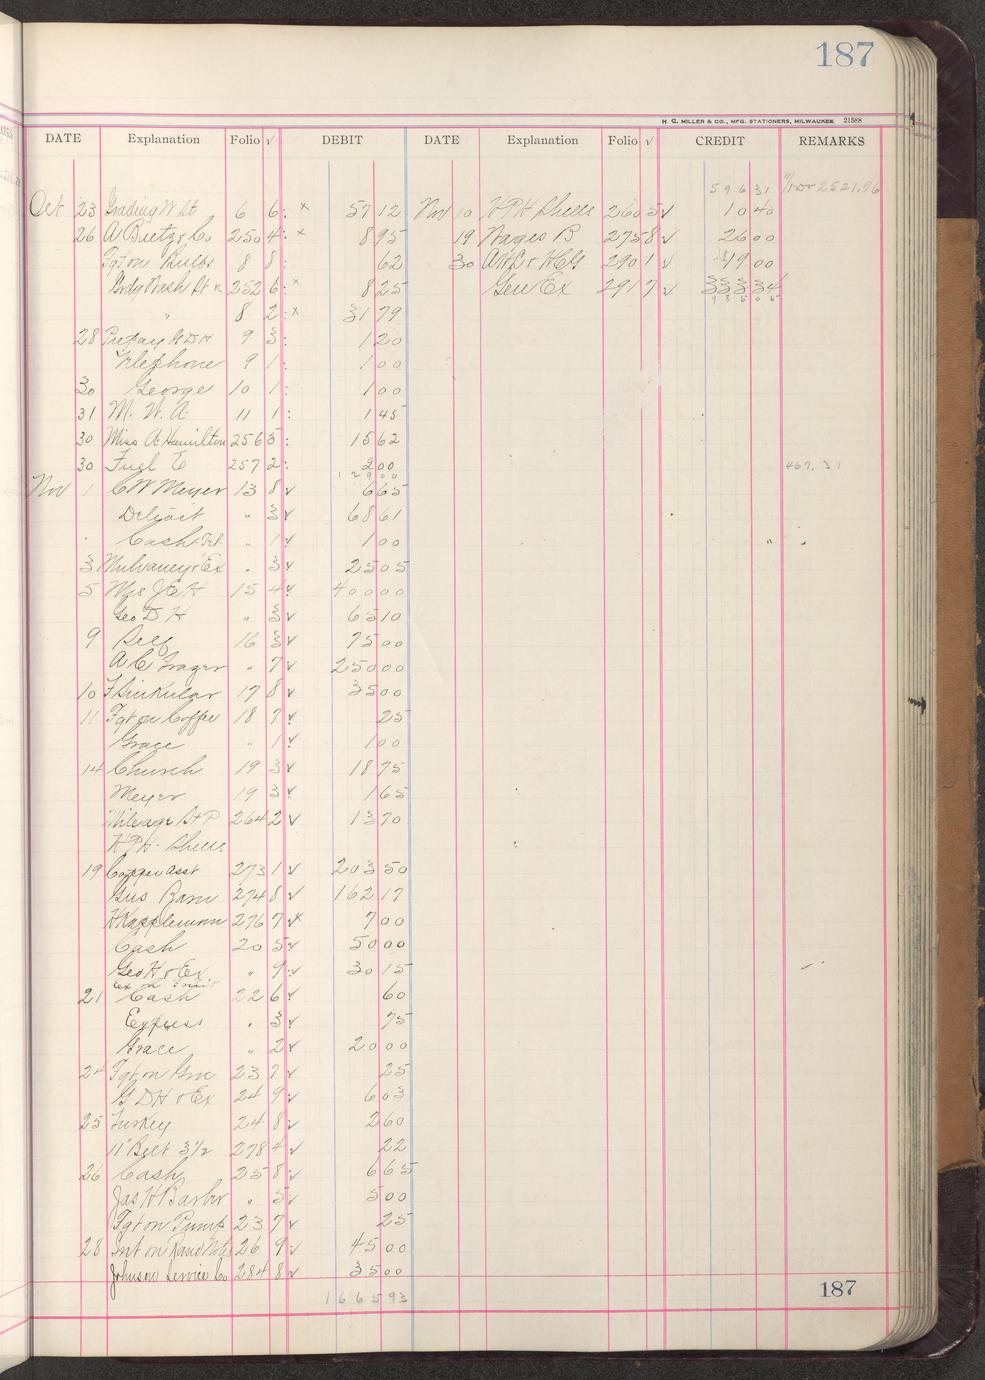 187
H. C. MILLER & CO., MFG. STATIONERS, MILWAUKEE. 21588
DATE Explanation Folio √ DEBIT DATE Explanation Folio √ CREDIT REMARKS
596 31 2521.96
Oct 23 Grading W St 6 6: x 57 12 Nov 10 H P H Shells 260 5 √ 10 40
26 A Buetz & Co 250 4: x 8 95 19 Wages B 275 8 √ 26 00
Fgt on Bulbs 8 8: 62 30 290 1 √ 19 00
Grdg Wash St x 252 6: x 8 25 Gen Ex 291 7 √ 333 34
" 8 2: x 31 79
28 Prepay G D H 9 3: 1 20
Telephone 9 1: 1 00
30 George 10 1: 1 00
31 M. W. A. 11 1: 1 45
30 Miss A Hamilton 256 5: 15 62
30 Fuel E 257 2: 2 00 467.31
129 00
Nov 1 C W Meyer 13 8 √ 6 65
Detroit " 3 √ 68 61
Cash " 1 √ 1 00
3 Mulvaney & Ex " 3 √ 25 05
5 Mrs J E H 15 4 √ 400 00
Geo D H " 3 √ 65 10
9 Self 16 3 √ 75 00
A C Frazer " 7 √ 250 00
10 F Sinkular 17 8 √ 35 00
11 Fgt on Coffee 18 7 √ 25
Grace " 1 √ 1 00
14 Church 19 3 √ 18 75
Meyer 19 3 √ 1 65
Mileage St P 264 2 √ 13 70
H P H Shells
19 Copper asst 273 1 √ 203 50
Gus Ram 274 8 √ 162 17
H Kappleman 276 7 √x 7 00
Cash 20 5 √ 50 00
Geo H & Ex " 9 √ 30 15
21 Cash 22 6 √ 60
Express " 3 √ 75
Grace " 2 √ 20 00
24 Fgt on Groc 23 7 √ 25
G D H & Ex 24 9 √ 6 03
25 Turkey 24 8 √ 2 60
11" Belt 3 1/2 278 4 √ 22
26 Cash 25 8 √ 6 65
Jas H Barber " 5 √ 5 00
Fgt on Pump 23 7 √ 25
28 Int on Rand Note 26 9 √ 45 00
Johnson Service Co 284 8 √ 35 00
1665 93
187